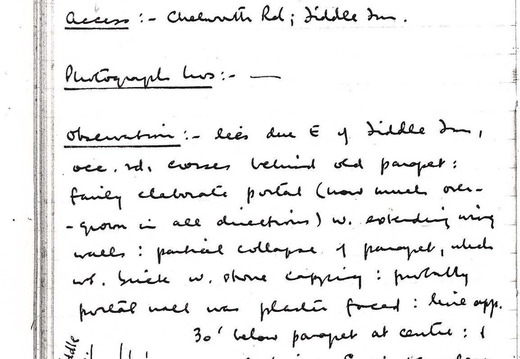 Access :- Chelworth Rd; Fiddle Inn.
Photograph Nos :- —
Observation :- lies due E of Fiddle Inn,
occ. rd. crosses behind old parapet :
fairly elaborate portal (now much over-
-grown in all directions) w. extending wing
walls : partial collapse of parapet, which
wd. brick w. stone capping : probably
portal wall was plaster faced : line app.
30' below parapet at centre :